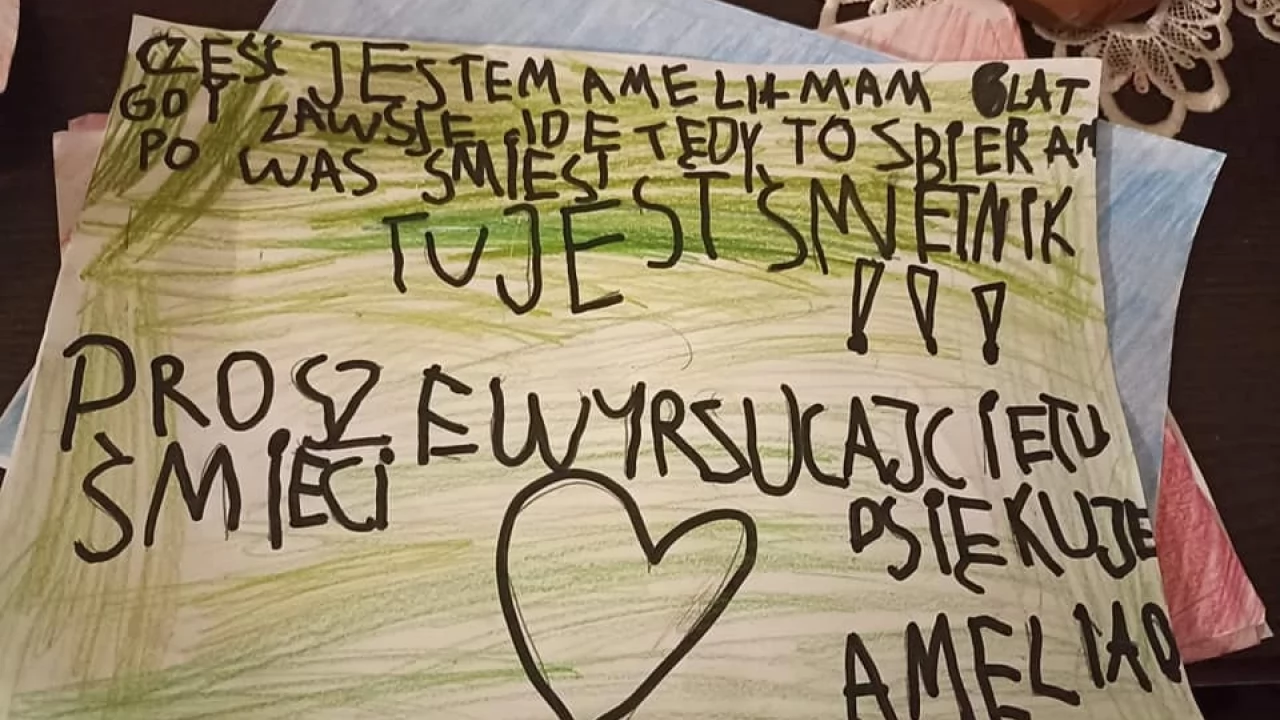 CZEŚĆ JESTEM AMELIA MAM 6 LAT
GDY ZAWSJE IDE TĘDY TO SBIERAM
PO WAS ŚMIEŚI
TU JEST ŚMIETNIK
!!!
PROSZE WYRSUCAJCIE TU
ŚMIECI
DSIĘKUJE
AMELIA O